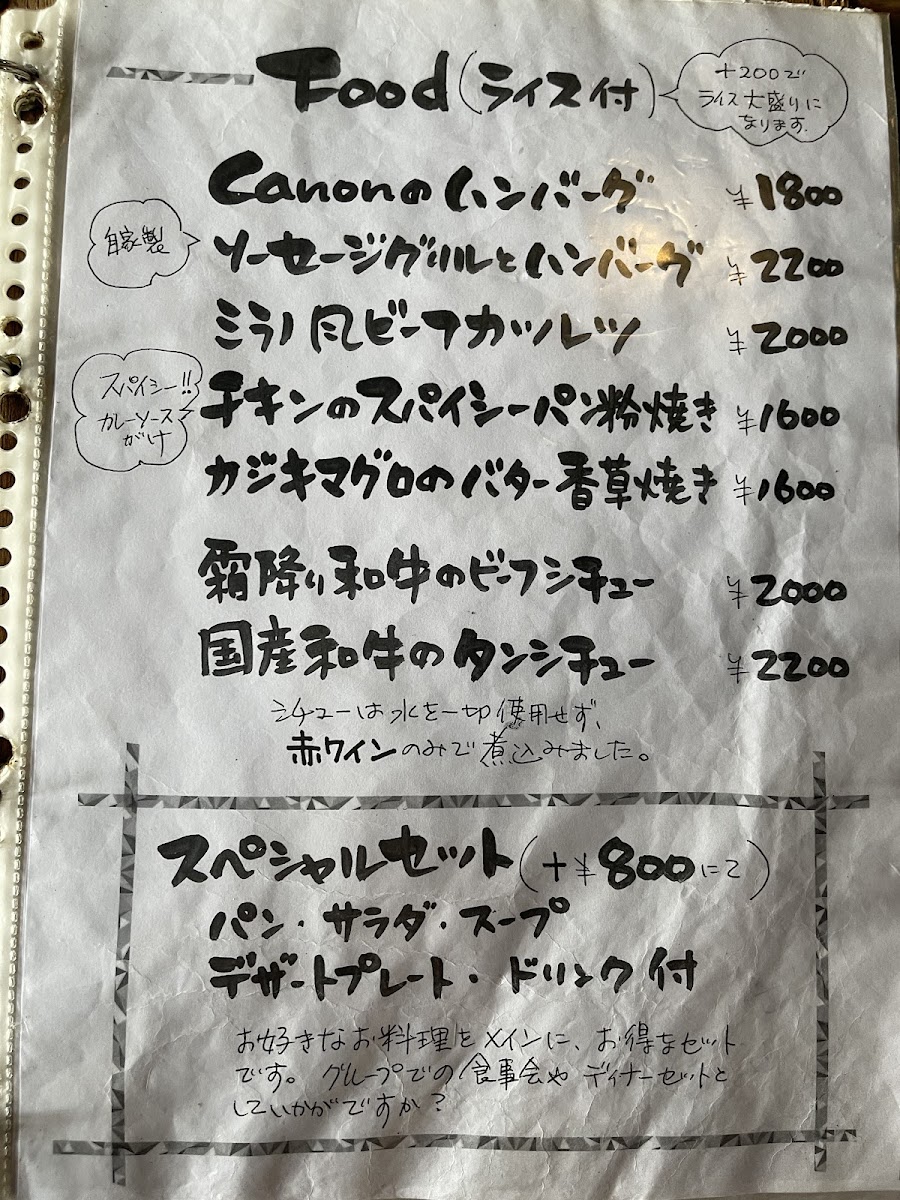 Food(ライス付)
+200で
ライス大盛りに
なります.
Canonのハンバーグ ¥1800
自家製
ソーセージグリルとハンバーグ ¥2200
ミラノ風ビーフカツレツ ¥2000
スパイシー!!
カレーソース
がけ
チキンのスパイシーパン粉焼き ¥1600
カジキマグロのバター香草焼き ¥1600
霜降り和牛のビーフシチュー ¥2000
国産和牛のタンシチュー ¥2200
シチューは水を一切使用せず、
赤ワインのみで煮込みました。
スペシャルセット(+¥800にて)
パン・サラダ・スープ
デザートプレート・ドリンク付
お好きなお料理をメインに、お得なセット
です。グループでの食事会や ディナーセットと
していかがですか?